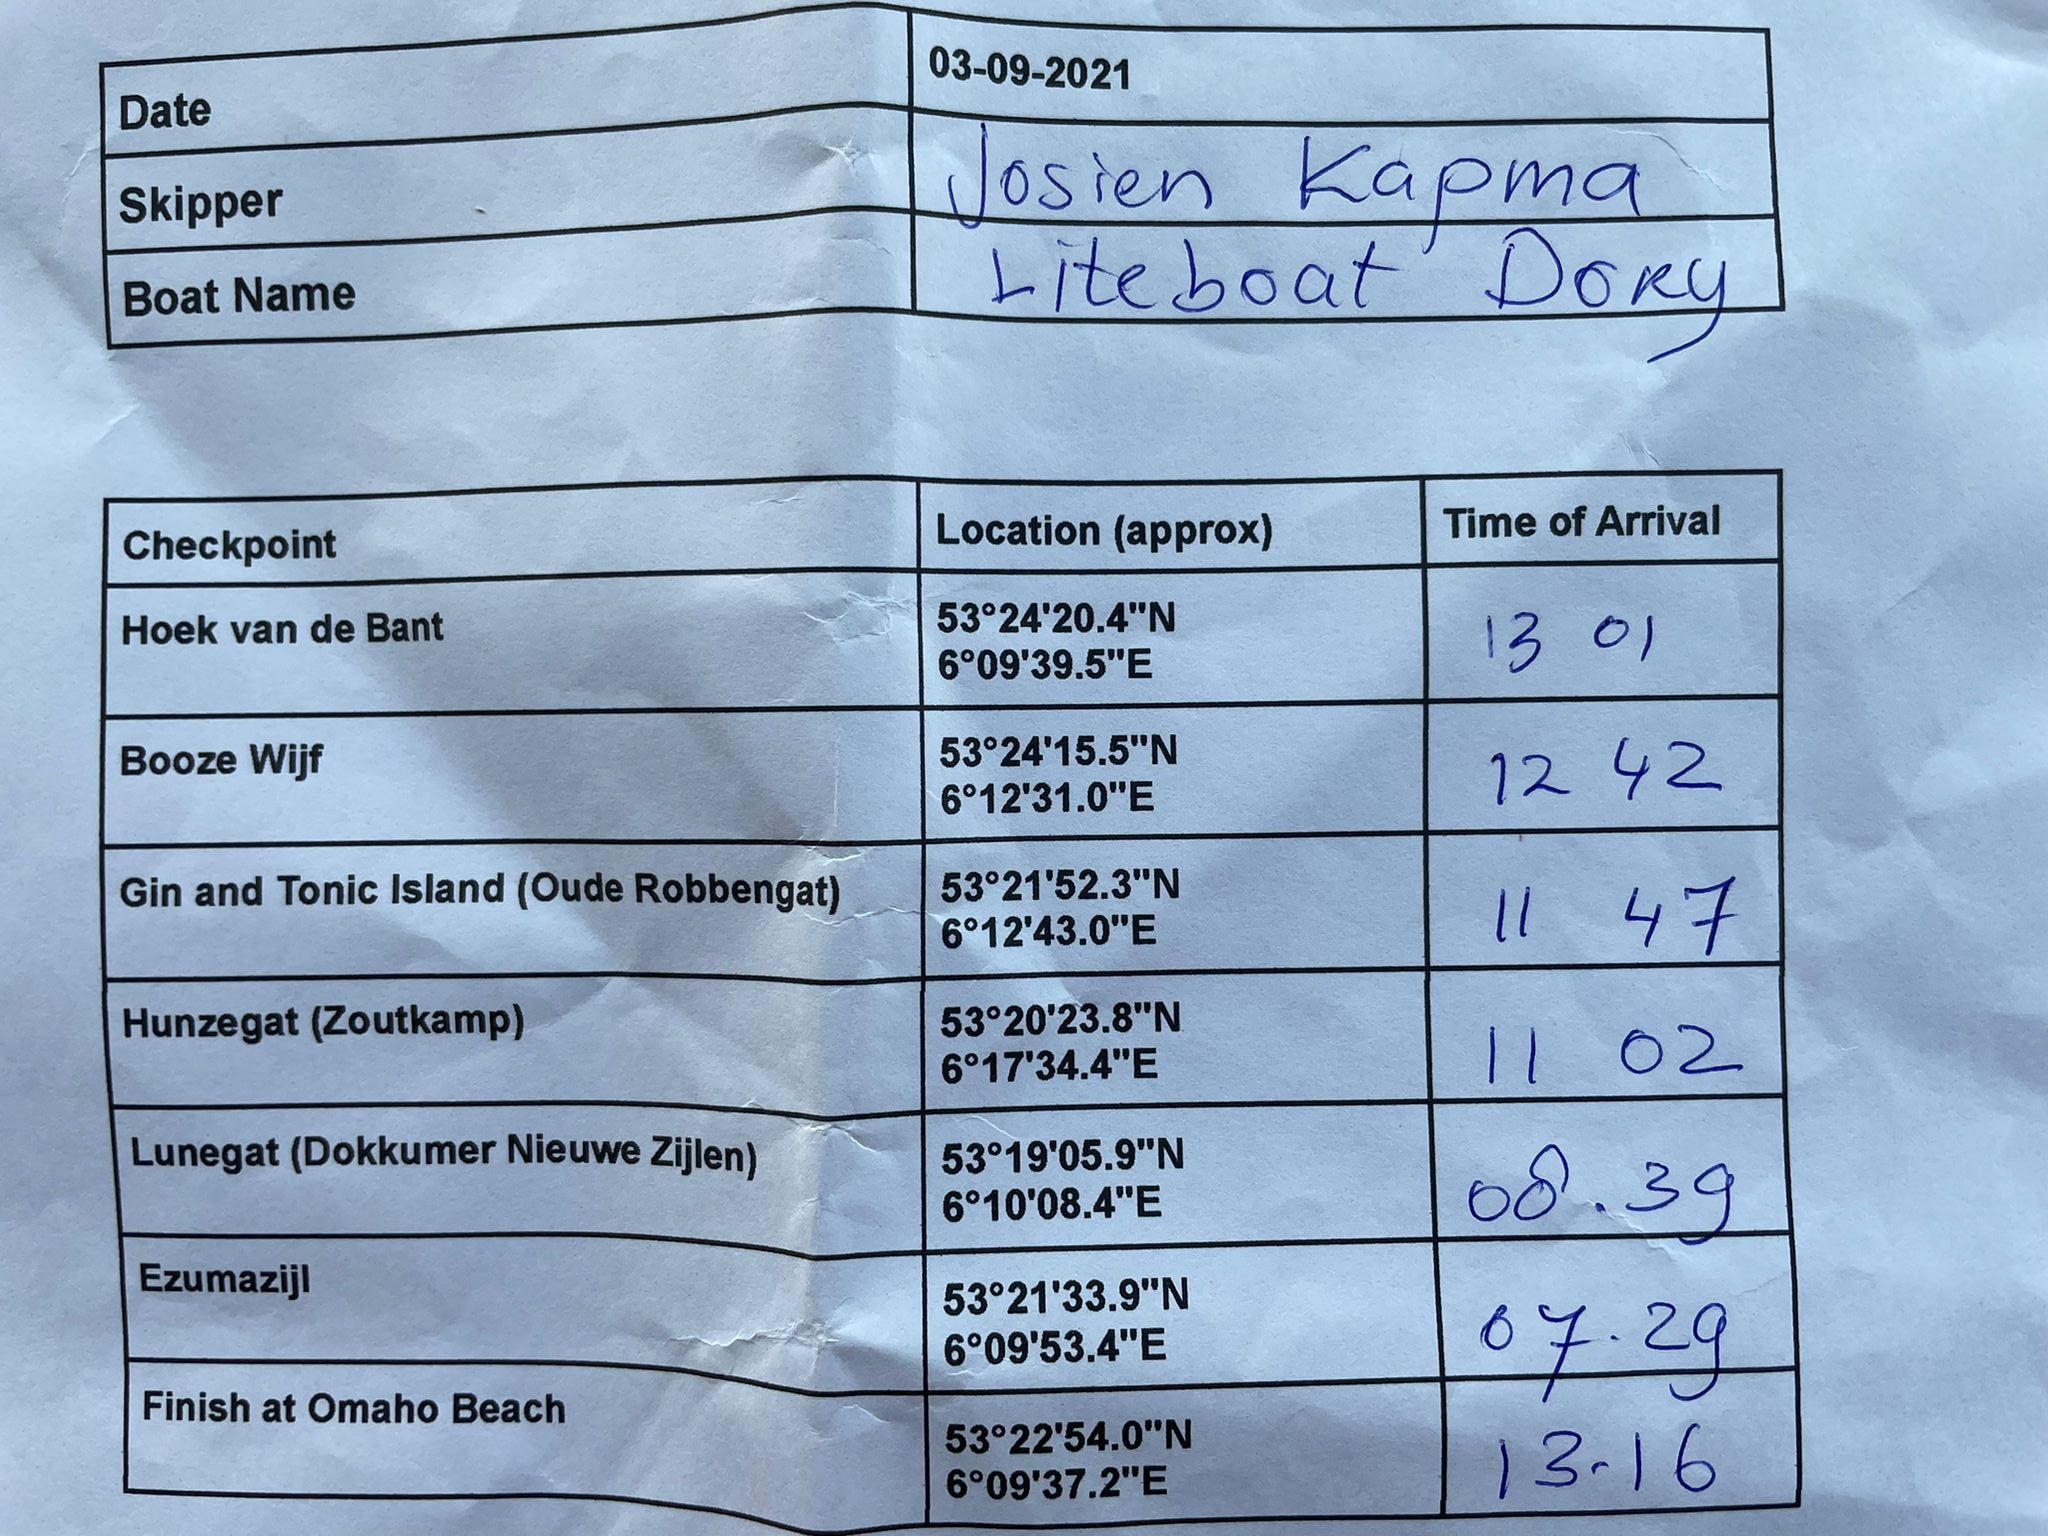 Date 03-09-2021
Skipper Josien Kapma
Boat Name Liteboat Dory
Checkpoint Location (approx) Time of Arrival
Hoek van de Bant 53°24'20.4"N 13 01
6°09'39.5"E
Booze Wijf 53°24'15.5"N 12 42
6°12'31.0"E
Gin and Tonic Island (Oude Robbengat) 53°21'52.3"N 11 47
6°12'43.0"E
Hunzegat (Zoutkamp) 53°20'23.8"N 11 02
6°17'34.4"E
Lunegat (Dokkumer Nieuwe Zijlen) 53°19'05.9"N 08.39
6°10'08.4"E
Ezumazijl 53°21'33.9"N 07.29
6°09'53.4"E
Finish at Omaho Beach 53°22'54.0"N 13-16
6°09'37.2"E